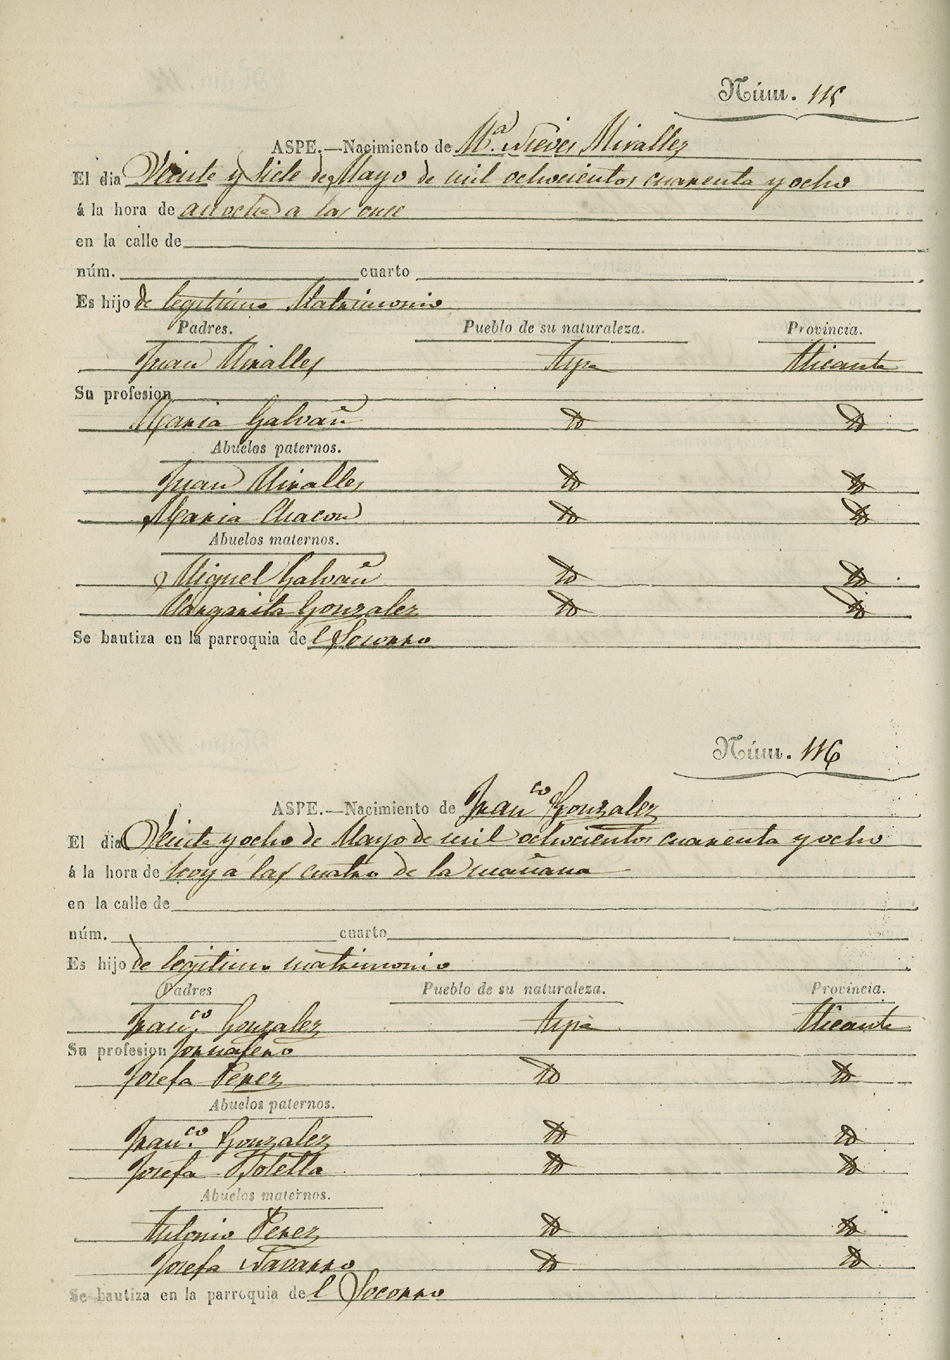 Núm. 115
ASPE.—Nacimiento de Mª. Nieves Miralles
El dia Veinte y siete de Mayo de mil ochocientos cuarenta y ocho
á la hora de anoche a las once
en la calle de
núm. cuarto
Es hijo de legitimo Matrimonio
Padres. Pueblo de su naturaleza. Provincia.
Juan Miralles Aspe Alicante
Su profesion
Maria Galvañ Id Id
Abuelos paternos.
Juan Miralles Id Id
Maria Chacon Id Id
Abuelos maternos.
Miguel Galvañ Id Id
Margarita Gonzalez Id Id
Se bautiza en la parroquia de l Socorro
Núm. 116
ASPE.—Nacimiento de Franco Gonzalez
El dia Veinte y ocho de Mayo de mil ochocientos cuarenta y ocho
á la hora de hoy a las cuatro de la mañana
en la calle de
núm. cuarto
Es hijo de legitimo matrimonio
Padres Pueblo de su naturaleza. Provincia.
Fran.co Gonzalez Aspe Alicante
Su profesion Jornalero
Josefa Perez Id Id
Abuelos paternos.
Fran.co Gonzalez Id Id
Josefa Botella Id Id
Abuelos maternos.
Antonio Perez Id Id
Josefa Navarro Id Id
Se bautiza en la parroquia de l Socorro